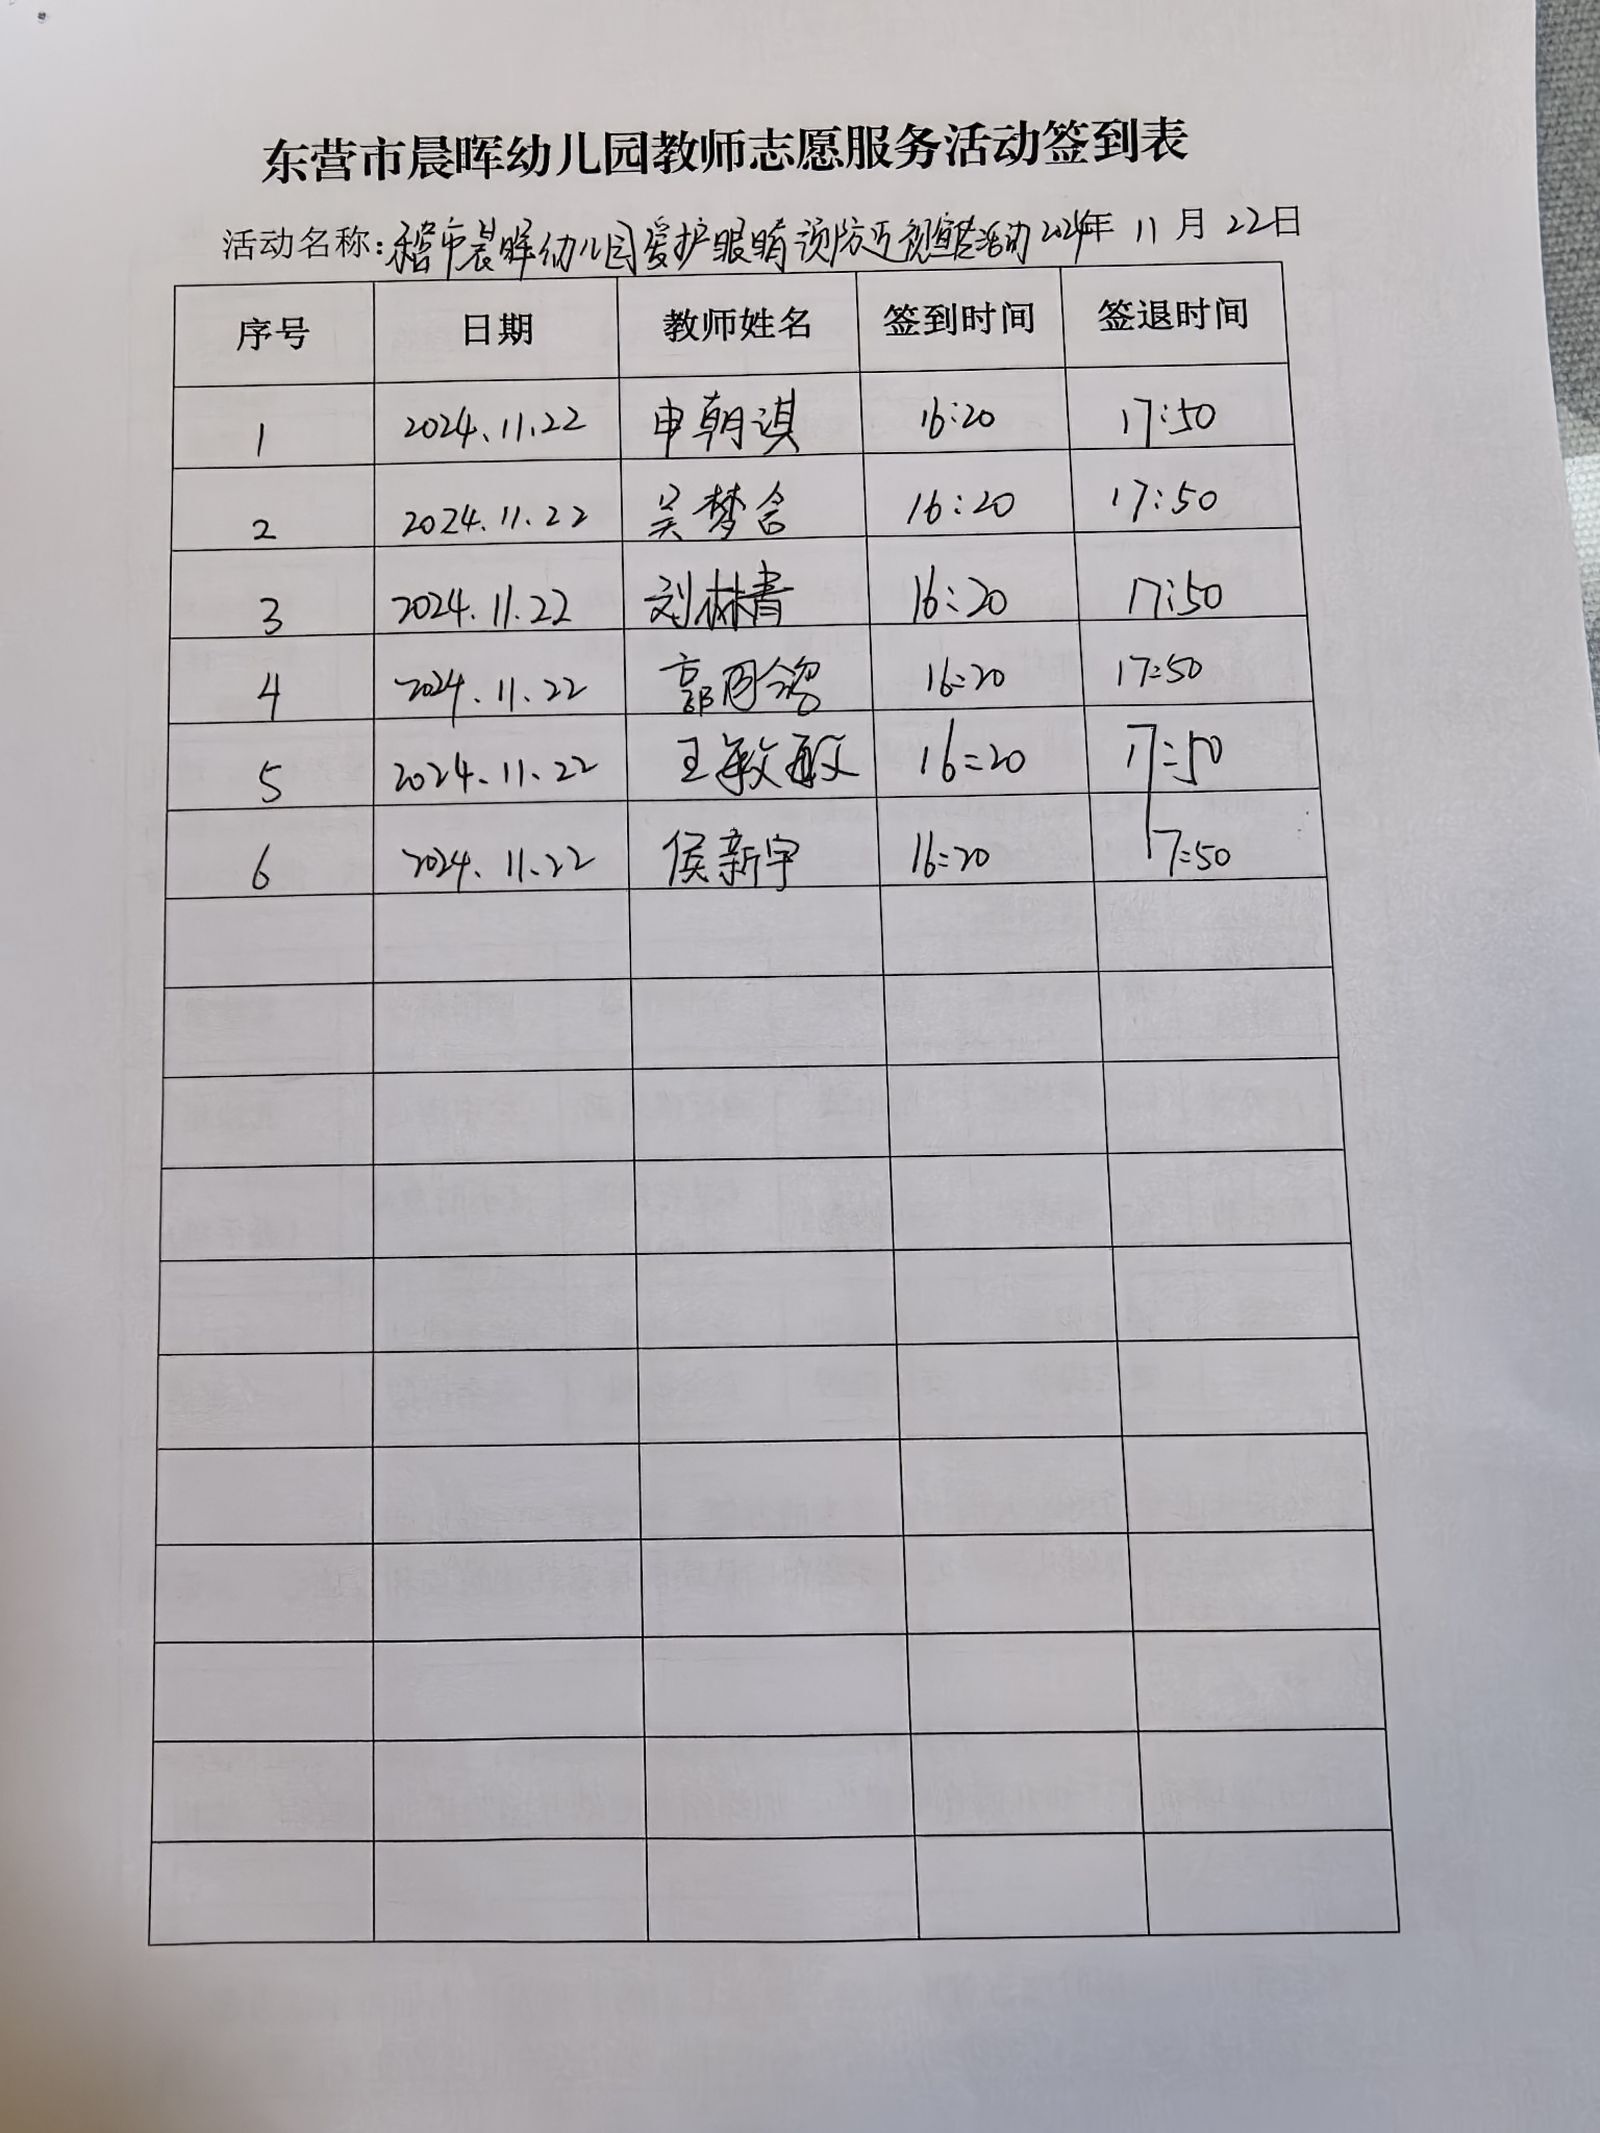 东营市晨晖幼儿园教师志愿服务活动签到表
活动名称:东营市晨晖幼儿园爱护眼睛预防近视宣传活动 2024年 11月 22日
序号 日期 教师姓名 签到时间 签退时间
1 2024.11.22 申朝淇 16:20 17:50
2 2024.11.22 吴梦含 16:20 17:50
3 2024.11.22 刘林青 16:20 17:50
4 2024.11.22 郭 16:20 17:50
5 2024.11.22 王敏敏 16:20 17:50
6 2024.11.22 侯新宇 16:20 17:50